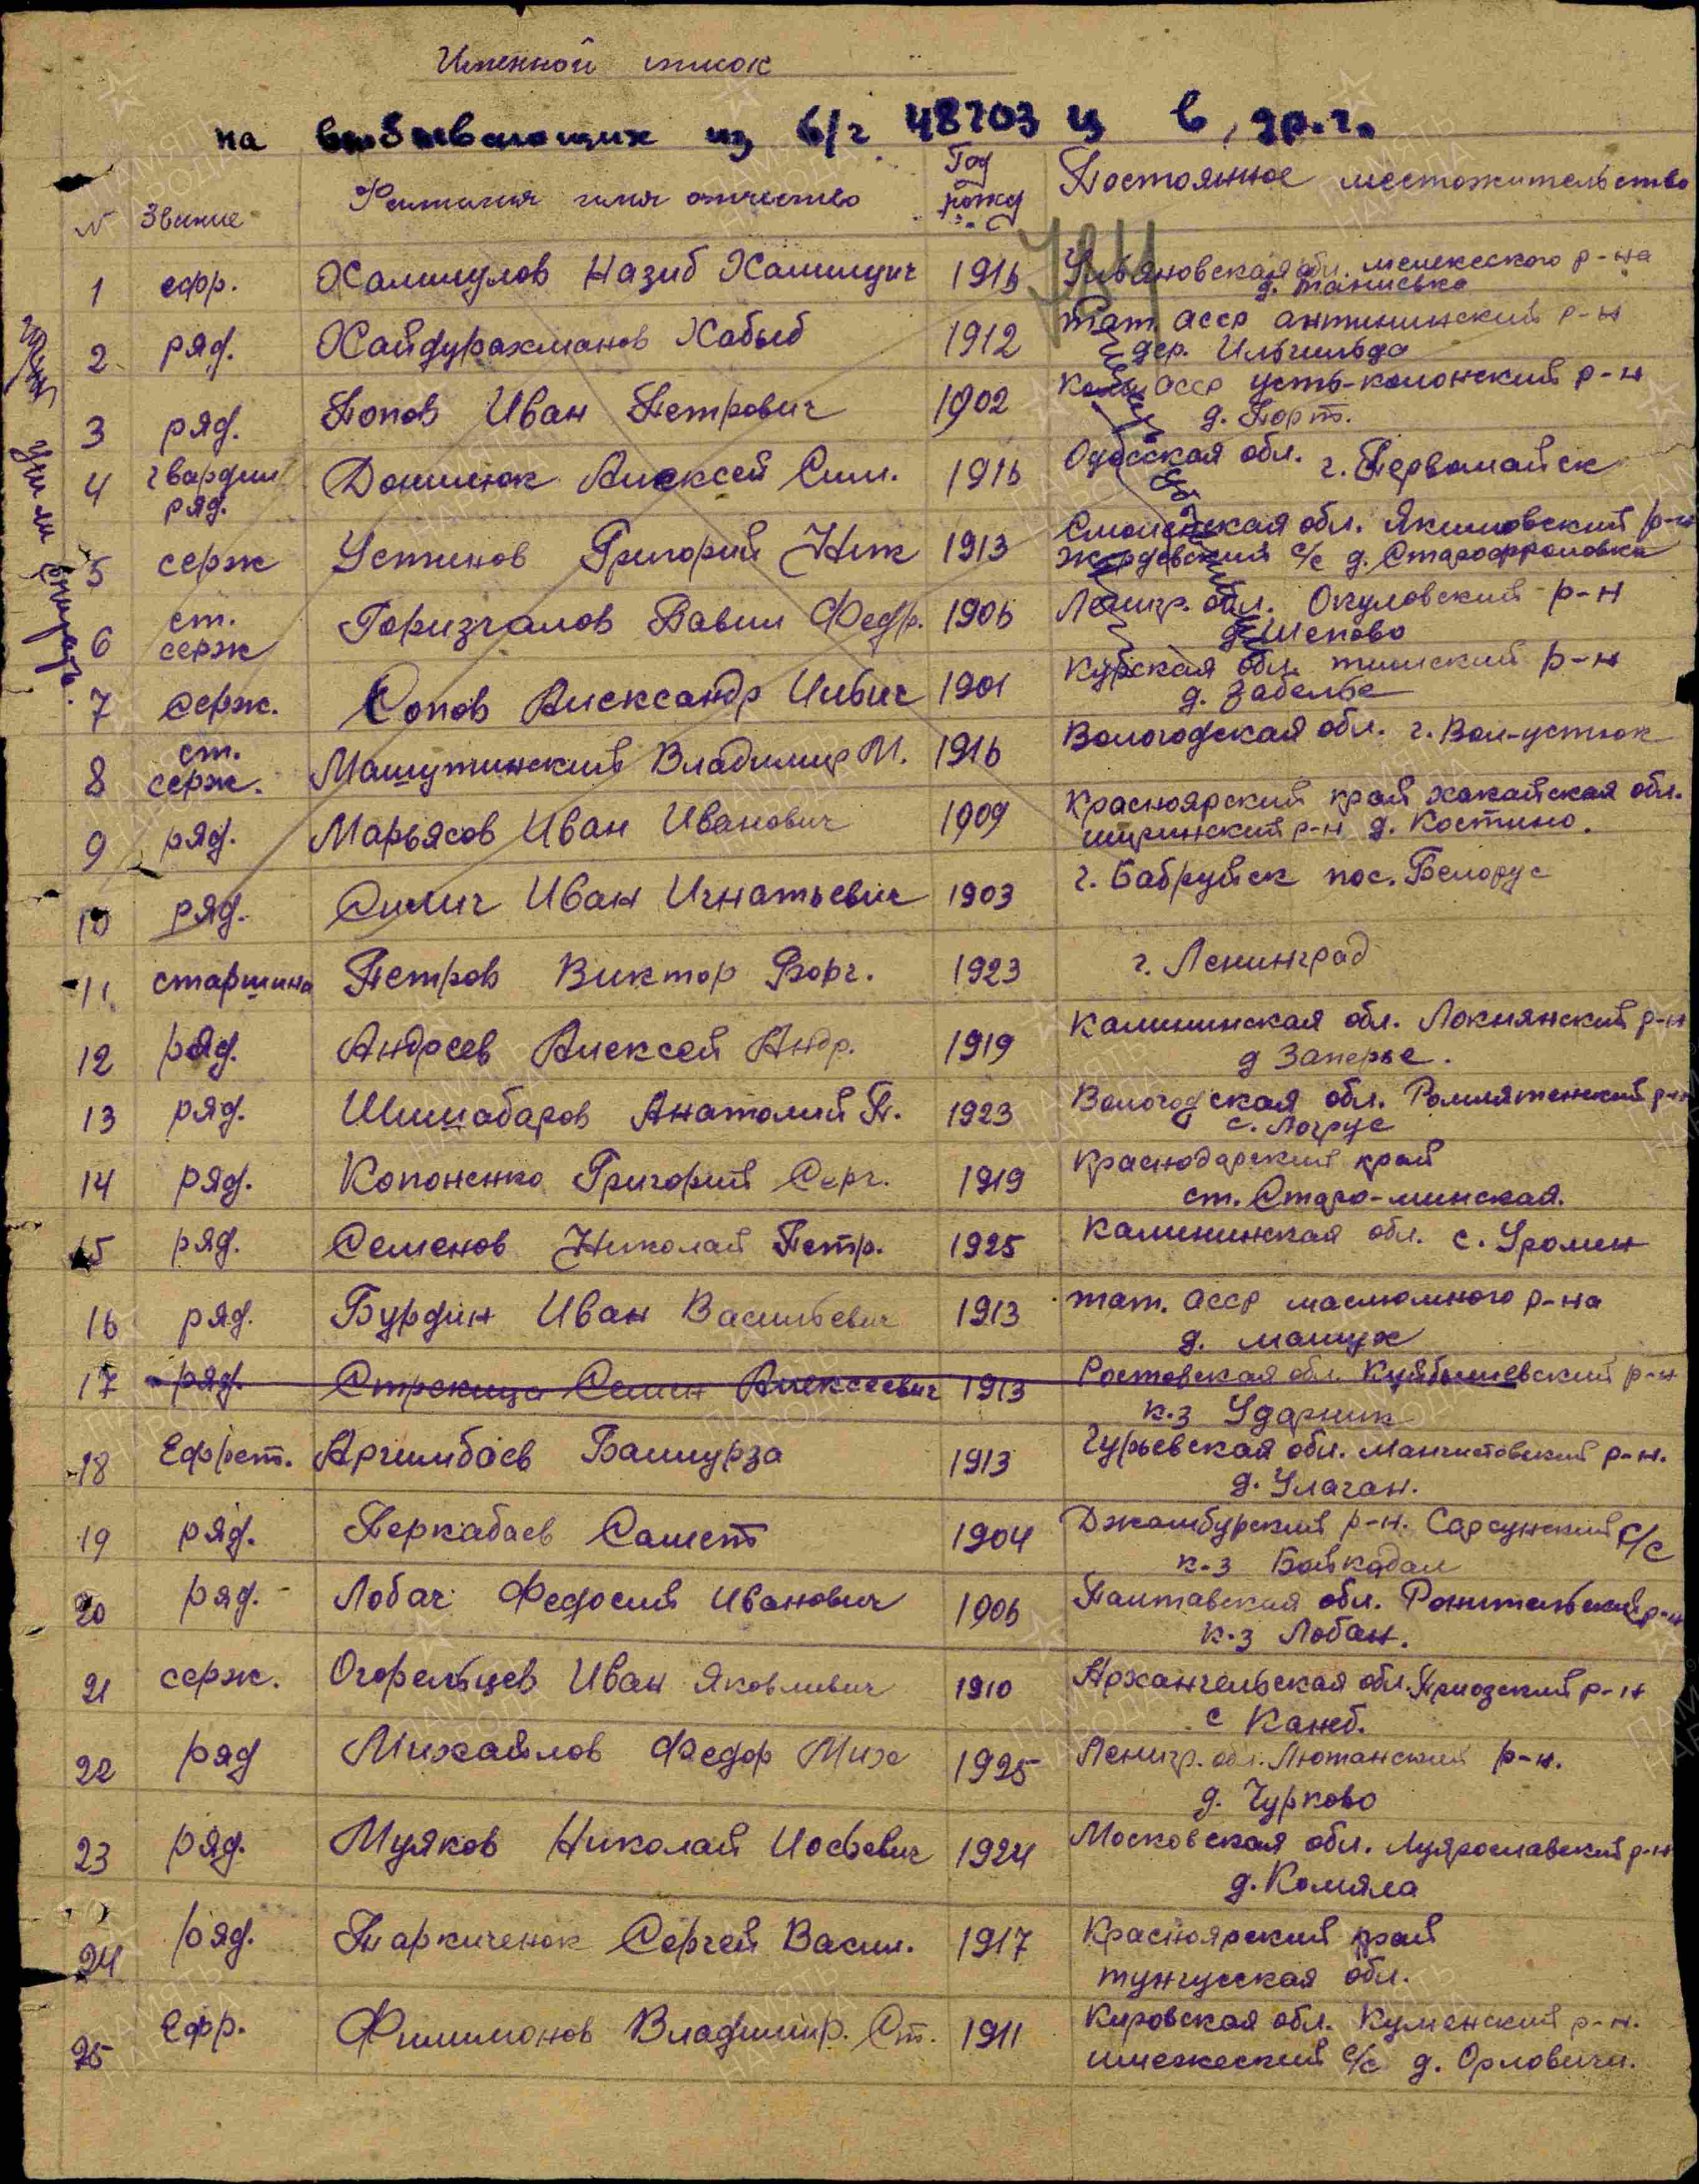 Именной список
на выбывающих из в/ч 48703 ц в др.ч.
№ Звание Фамилия имя отчество Год рожд Постоянное местожительство
1 ефр. Хамидулов Назиб 1916 Ульяновская обл. мелекеского р-на
2 ряд. Хайдурахманов Хабыб 1912 тат. асср р-н
дер. Ильчильда
3 ряд. Попов Иван Петрович 1902 Коми асср усть-каломский р-н
д. Порт.
4 гвардии ряд. Данилюк Алексей Сим. 1916 Одесская обл. г. Первомайск
5 серж Устинов Григорий Ник 1913 Смоленская обл. Якимовский р-н
с/с д. Старофроловка
6 ст. серж Вавил Федр. 1906 Ленигр. обл. Окуловский р-н
д. Шепово
7 серж. Сопов Александр Ильич 1901 Курская обл. тимский р-н
д. Забелье
8 ст. серж. Машутинский Владимир М. 1916 Вологодская обл. г. Вол-устюк
9 ряд. Марьясов Иван Иванович 1909 Красноярский край хакайская обл.
ширинский р-н д. Костино.
10 ряд. Силич Иван Игнатьевич 1903 г. Бабруйск пос. Белорус
11 старшина Петров Виктор Георг. 1923 г. Ленинград
12 ряд. Андреев Алексей Андр. 1919 Калининская обл. Локнянский р-н
д Заперье.
13 ряд. Шишабаров Анатолий П. 1923 Вологодская обл. р-н
с. Логрус
14 ряд. Копоненко Григорий Серг. 1919 Краснодарский край
ст. Старо-минская.
15 ряд. Семенов Николай Петр. 1925 Калининская обл. с. Уромен
16 ряд. Бурдин Иван Васильевич 1913 тат. асср р-на
д. машух
17 ряд. Стрекица Семен Алексеевич 1913 Ростовская обл. Куйбышевский р-н
к-з Ударник
18 Ефрет. Аргимбаев Баймурза 1913 Гурьевская обл. Мангистовский р-н.
д. Улаган.
19 ряд. Перкабаев Самет 1904 Джамбурский р-н. Сарсунский с/с
к-з Байкадам
20 ряд. Лобач Федосий Иванович 1906 Палтавская обл. р-н
к-з Лобан.
21 серж. Огорельцев Иван Яковлевич 1910 Архангельская обл. Приозский р-н
с Канеб.
22 ряд Михайлов Федор Мих 1925 Ленигр. обл. Лютанский р-н.
д. Чурково
23 ряд. Муяков Николай Иосевич 1924 Московская обл. Луярославский р-н
д. Комяла
24 ряд. Таркиченок Сергей Васил. 1917 Красноярский край
тунгусская обл.
25 Ефр. Филимонов Владимир. Ст. 1911 Кировская обл. Куменский р-н.
с/с д. Орловичи.